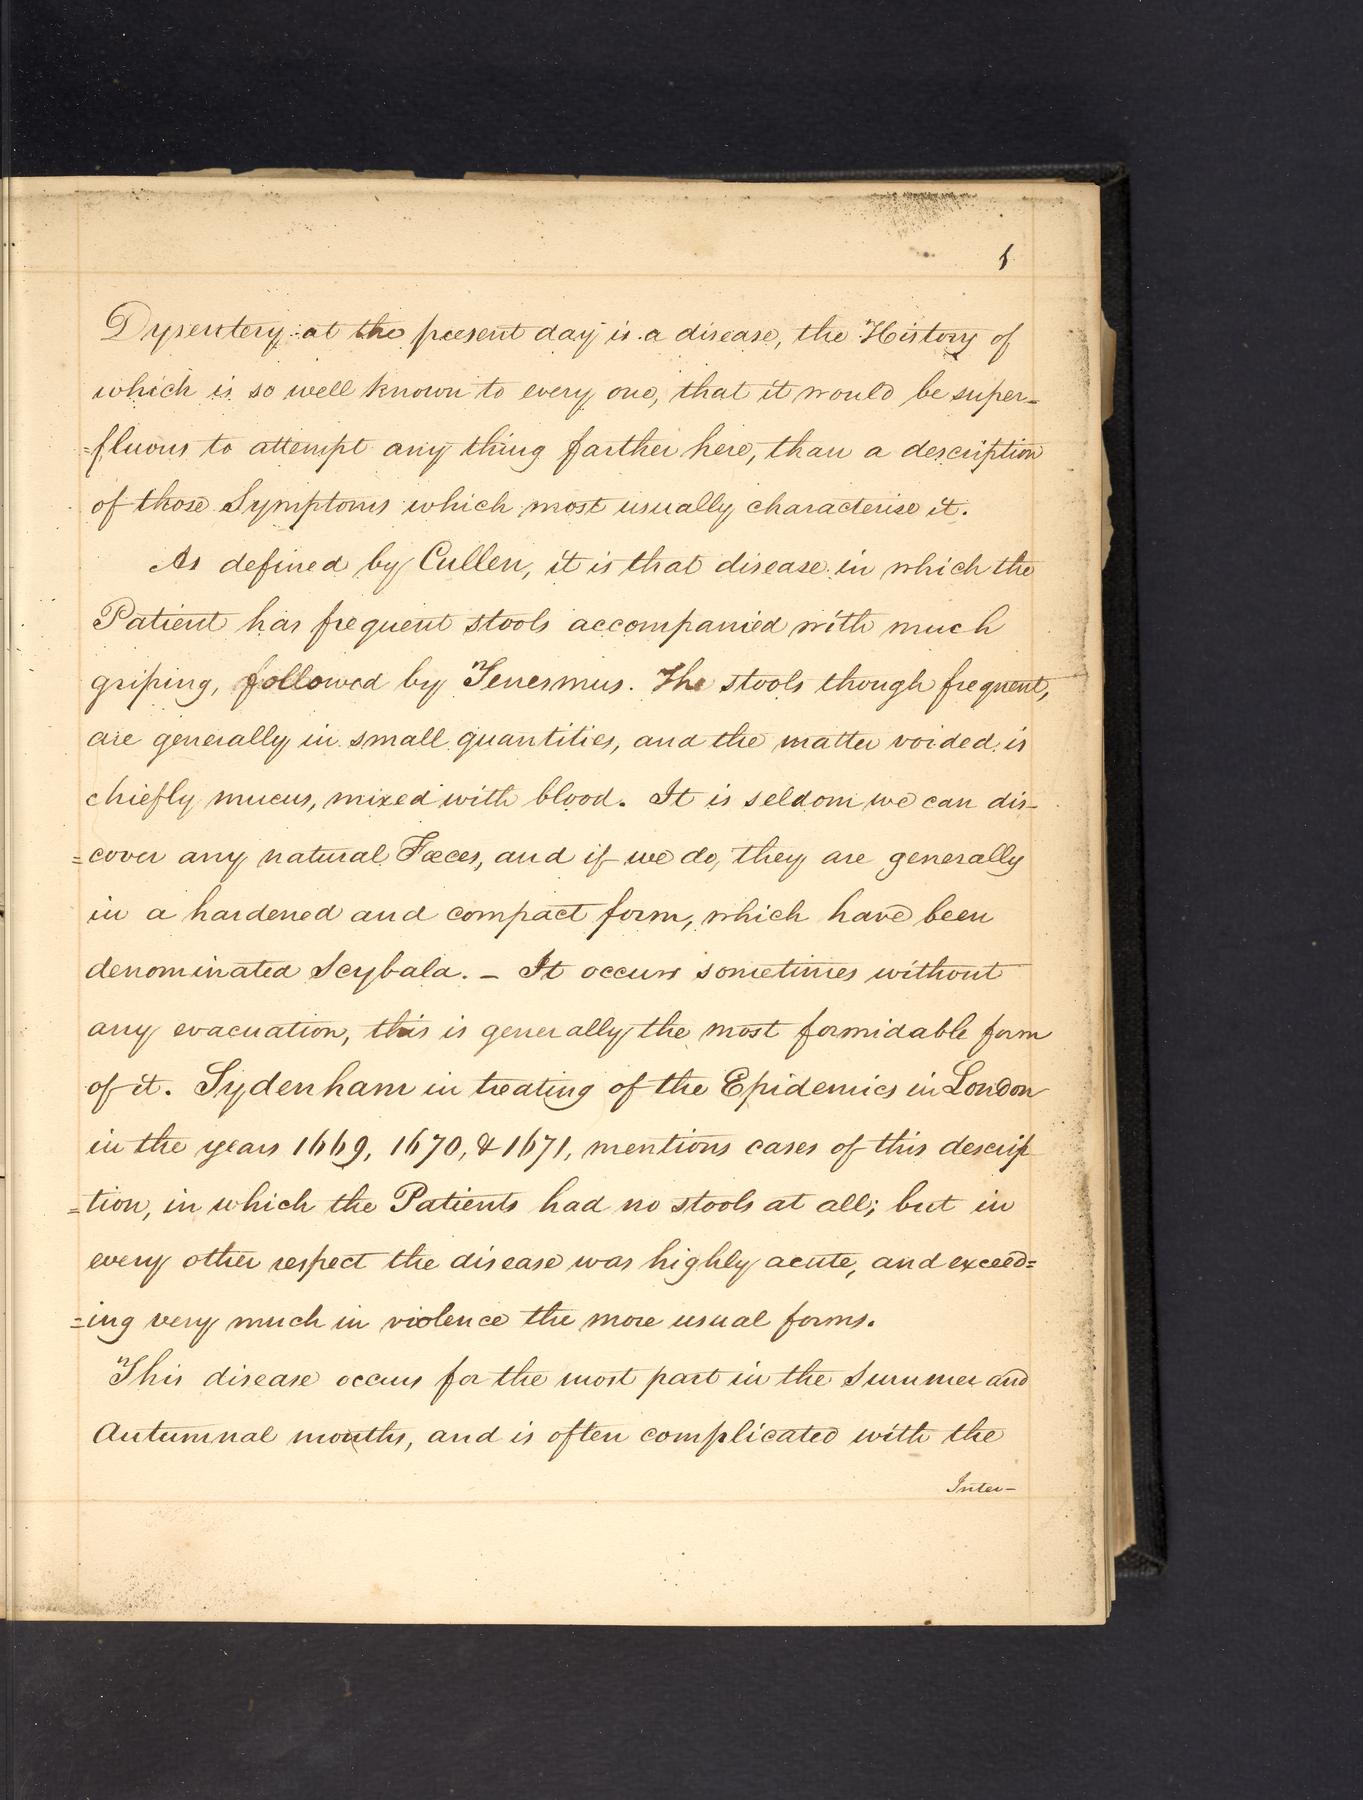 1
Dysentery at the present day is a disease, the History of
which is so well known to every one, that it would be super=
=fluous to attempt any thing farther here, than a description
of those Symptoms which most usually characterise it.
As defined by Cullen, it is that disease in which the
Patient has frequent stools accompanied with much
griping, followed by Tenesmus. The stools though frequent,
are generally in small quantities, and the matter voided is
chiefly mucus, mixed with blood. It is seldom we can dis-
=cover any natural Fæces, and if we do, they are generally
in a hardened and compact form, which have been
denominated Scybala. - It occurs sometimes without
any evacuation, this is generally the most formidable form
of it. Sydenham in treating of the Epidemics in London
in the years 1669, 1670, & 1671, mentions cases of this descrip
=tion, in which the Patients had no stools at all; but in
every other respect the disease was highly acute, and exceed=
=ing very much in violence the more usual forms.
This disease occurs for the most part in the Summer and
Autumnal months, and is often complicated with the
Inter-